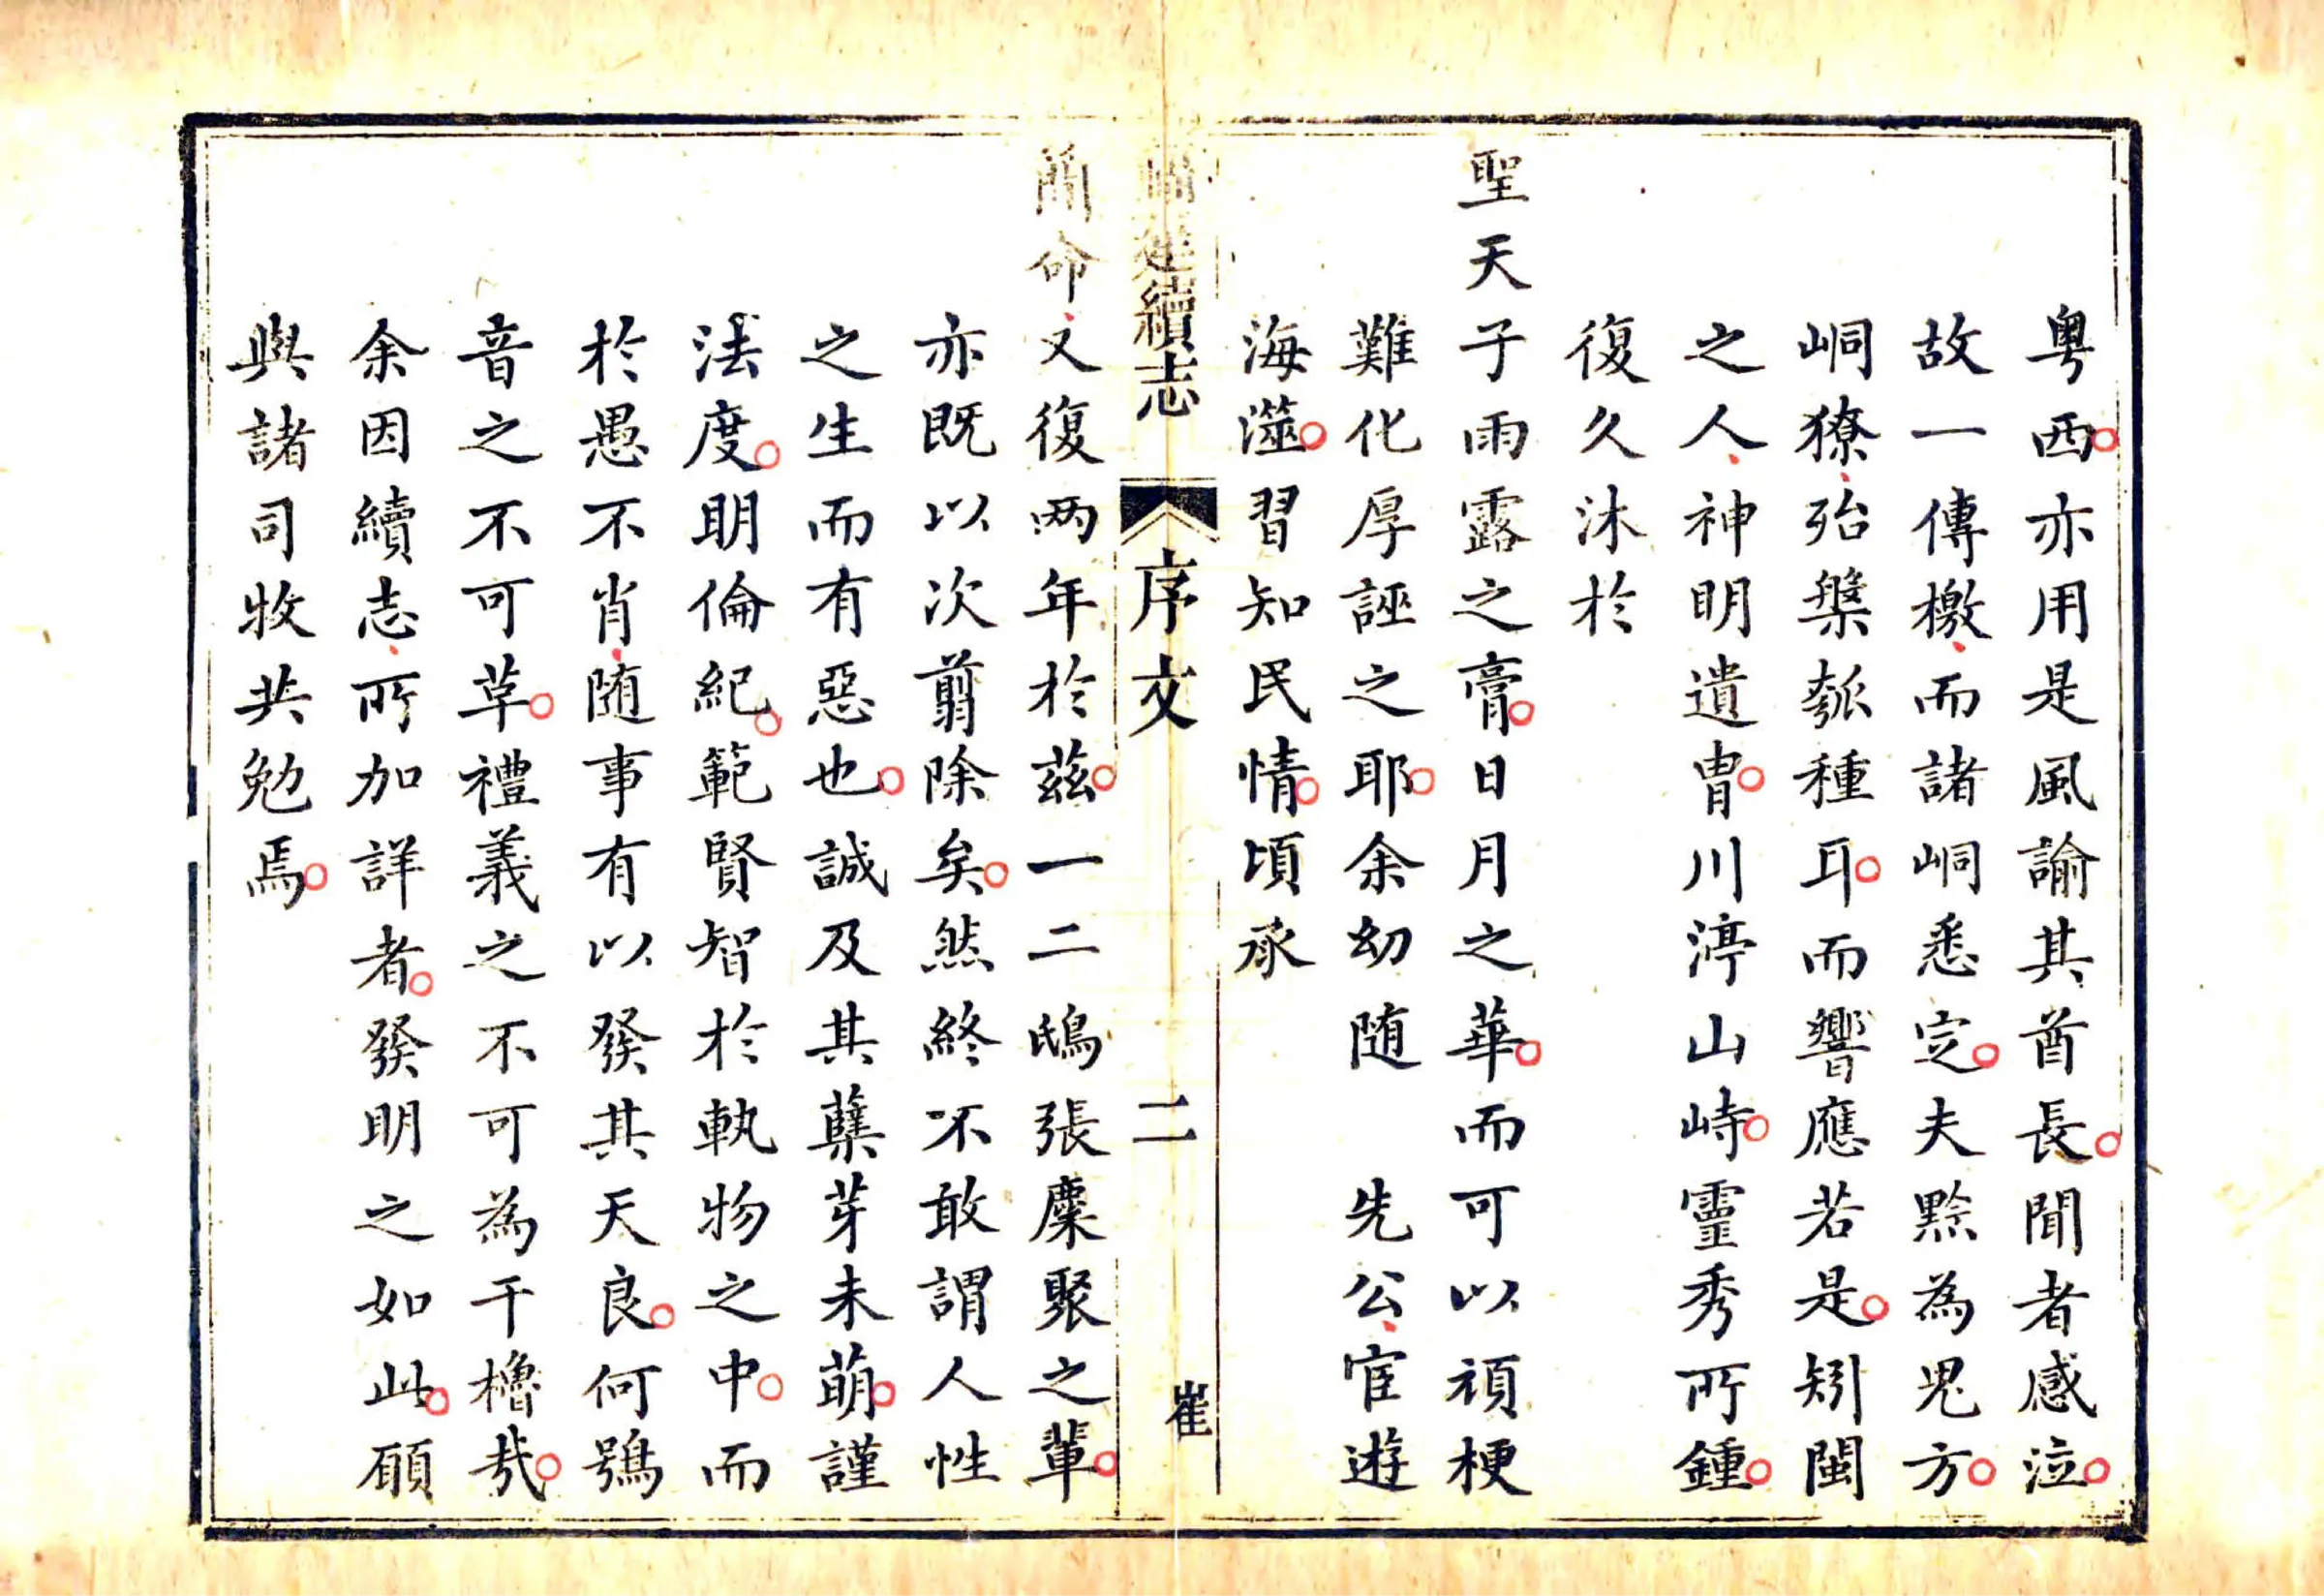 粤西亦用是風諭其酋長聞者感泣
故一傳檄而諸峒悉定夫黥為鬼方
峒獠殆槃瓠種耳而響應若是矧閩
之人神明遺胄川渟山峙靈秀所鍾
復久沐於
聖天子雨露之膏日月之華而可以頑梗
難化厚誣之耶余幼随　先公宦遊
海澨習知民情頃承
福建續志　序文　二　崔
簡命又復两年於兹一二鴟張麇聚之輩
亦既以次翦除矣然終不敢謂人性
之生而有惡也誠及其櫱芽未萌謹
法度明倫紀範賢智於軌物之中而
於愚不肖随事有以發其天良何鴞
音之不可革禮義之不可為干櫓哉
余因續志所加詳者發明之如此願
與諸司牧共勉焉